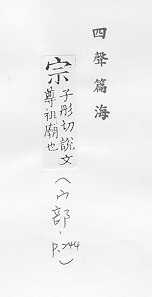 四聲篇海
宗
子彤切說文
尊祖廟也
(宀部, p.244)